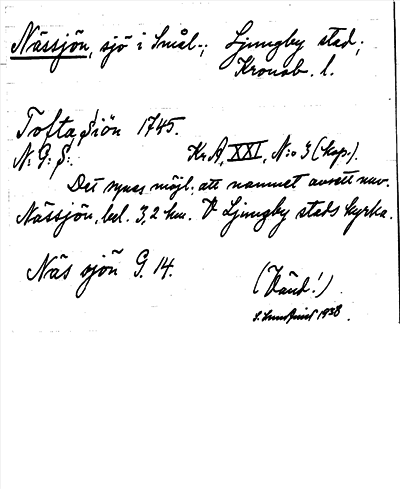 Nässjön, sjö i Smål.; Ljungby stad;
Kronob. l.
Tofta Siön 1745.
N: G: S:. Kr A, XXI, N:o 3 (kop.).
Det synes möjl. att namnet avsett nuv.
Nässjön, bel. 3,2 km. V Ljungby stads kyrka.
Näs sjön G. 14.
(Vänd!)
1938.